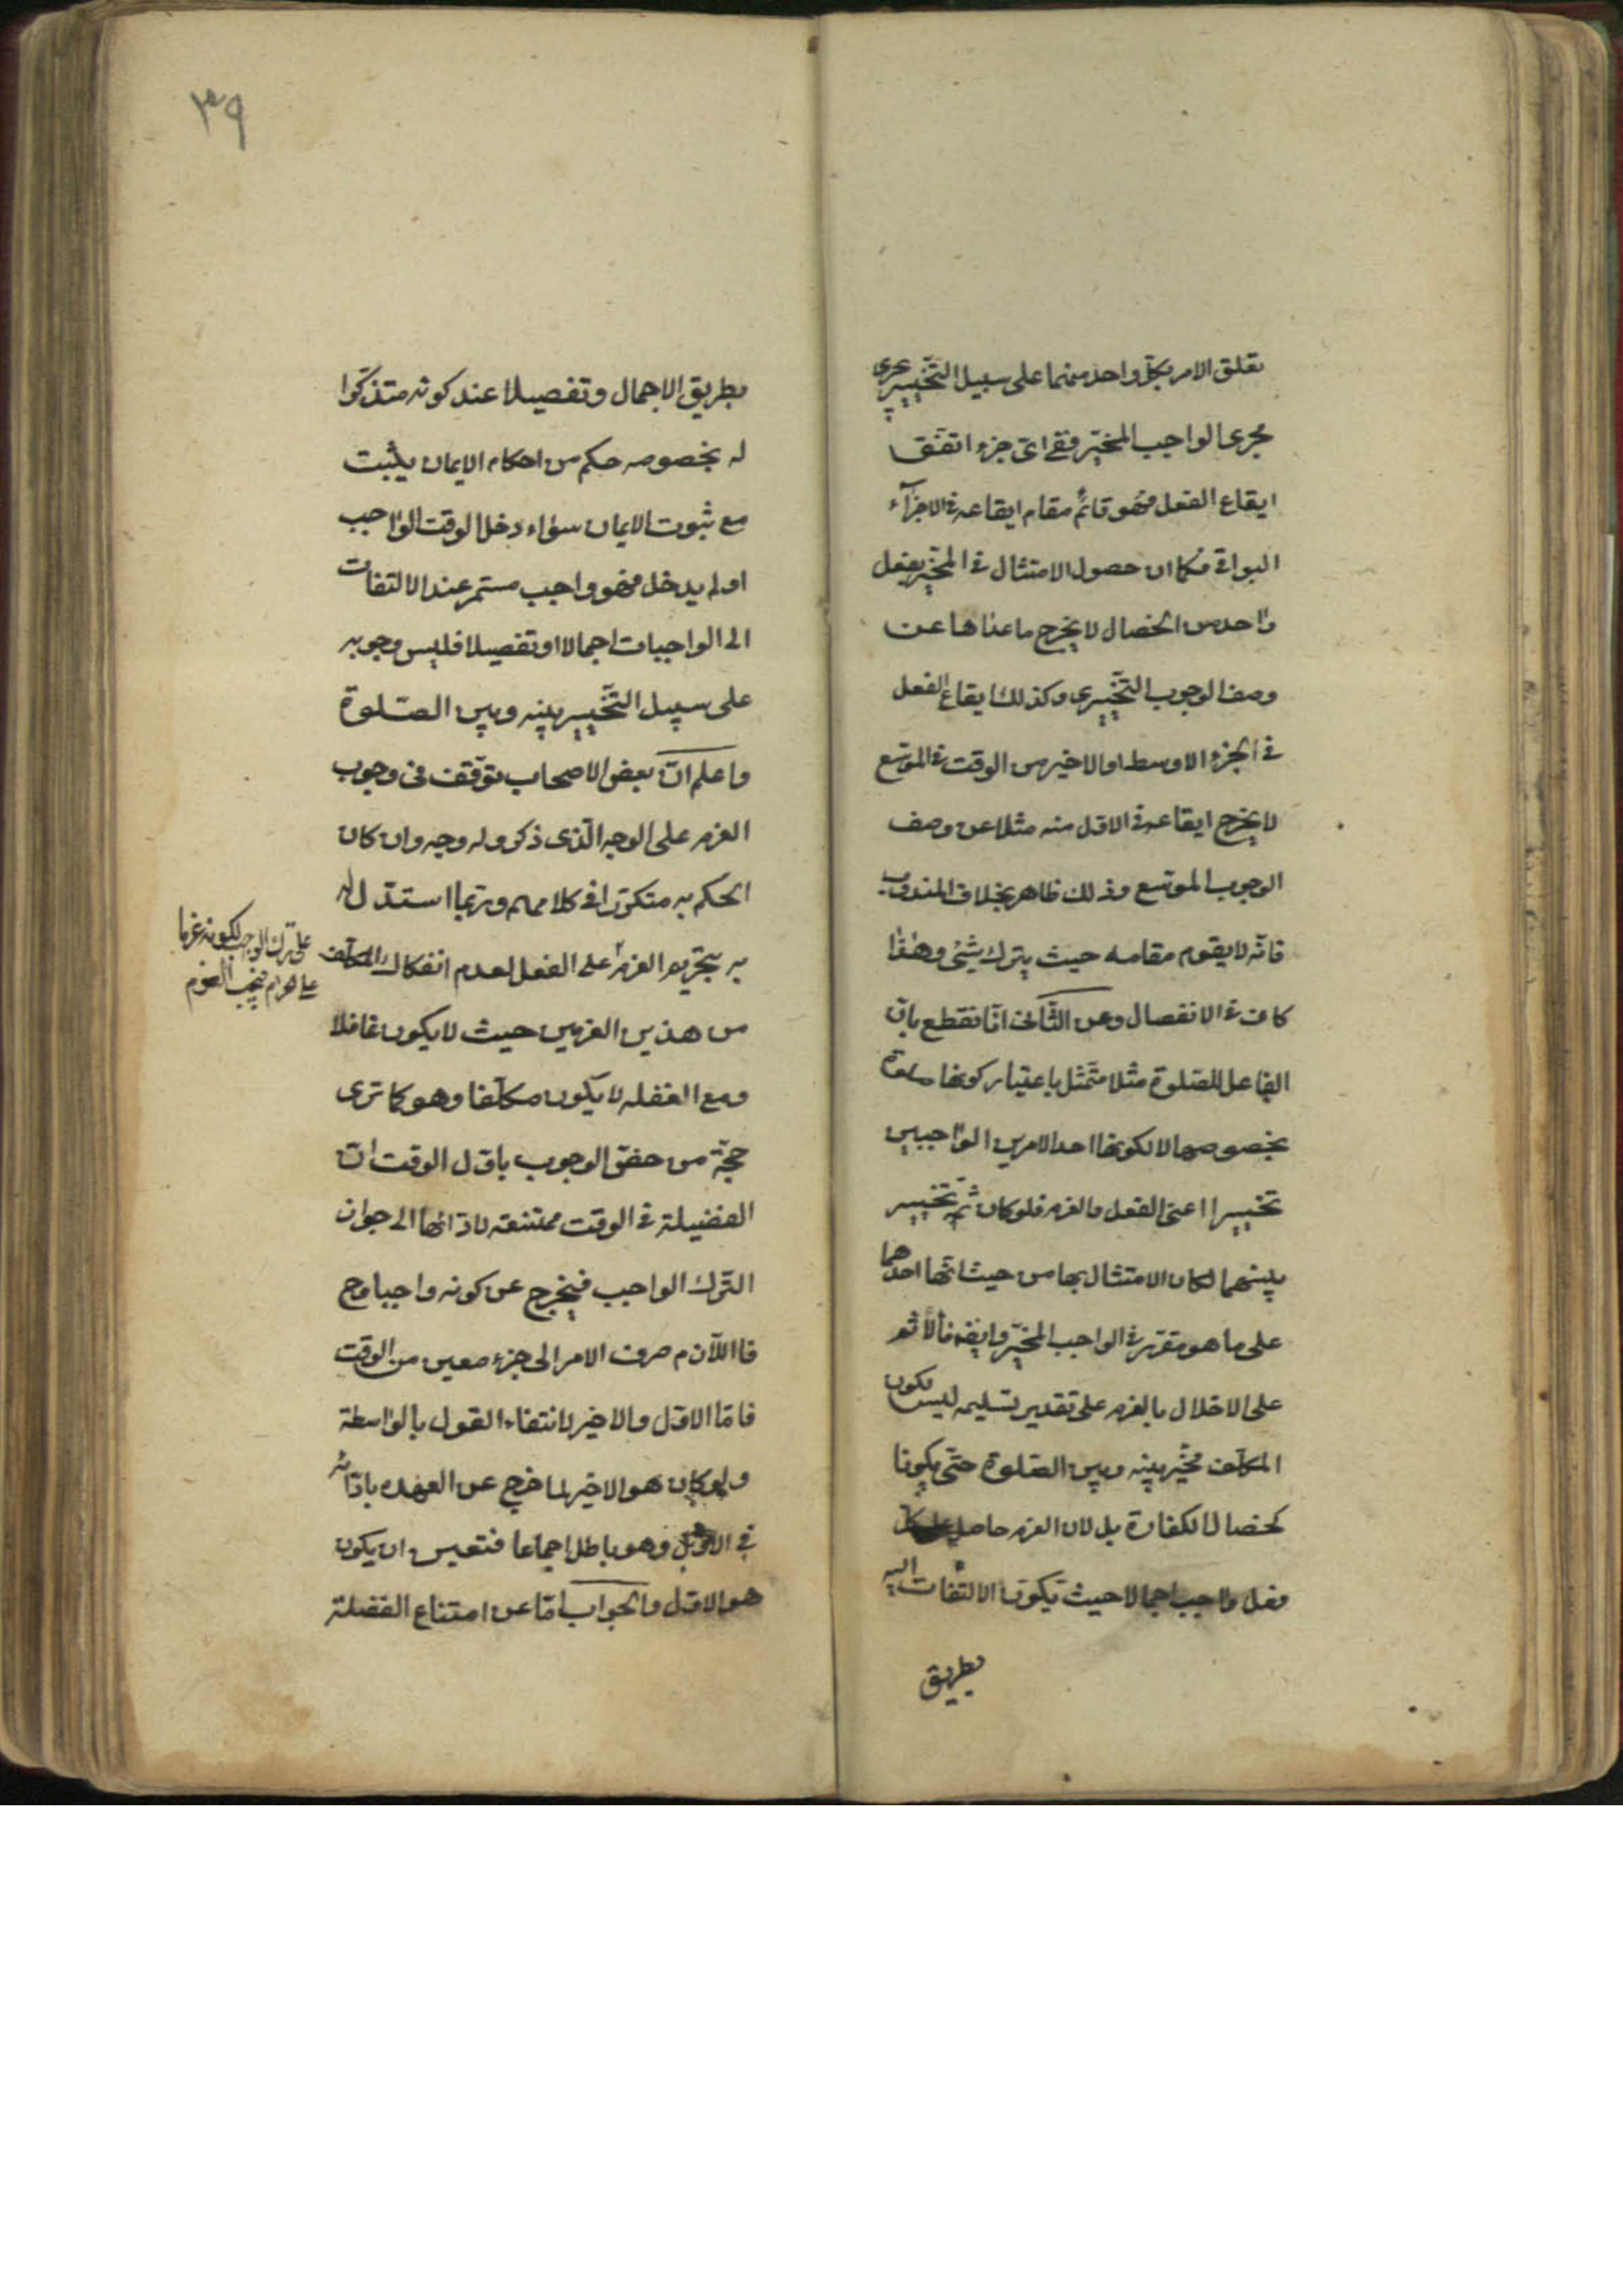 تعلق الامر بكل واحد منهما على سبيل التخيير يجرى
مجرى الواجب المخير ففى اىّ جزء اتفق
ايقاع الفعل فهو قائم مقام ايقاعه فى الاجزآء
البواقى فكما ان حصول الامتثال فى المخيّر بفعل
واحد من الخصال لا يخرج ما عداها عن
وصف الوجوب التخييرى وكذلك ايقاع الفعل
فى الجزء الاوسط او الاخير من الوقت فى الموسّع
لا يخرج ايقاعه فى الاول منه مثلا عن وصف
الوجوب الموسّع وذلك ظاهر بخلاف المندوب
فانّه لا يقوم مقامه حيث يترك شيئ وهذا
كاف فى الانفصال وعن الثّانى انّا نقطع بانّ
الفاعل للصّلوة مثلا متمثل باعتبار كونها صلوة
بخصوصها لا لكونها احد الامرين الواجبين
تخييرا اعنى الفعل والعزم فلو كان ثمّ تخيير
بينهما لكان الامتثال بها من حيث انّها احدهما
على ما هو مقرّر فى الواجب المخيّر وايضه فالاثم
على الاخلال بالعزم على تقدير تسليمه ليس لكون
المكلّف مخيّر بينه وبين الصّلوة حتّى يكونا
كخصال الكفارة بل لان العزم حاصل على كل
فعل واجب اجمالا حيث يكون الالتفات اليه
بطريق
٣٩
بطريق الاجمال وتفصيلا عند كونه متذكّرا
له بخصوصه حكم من احكام الايمان يثبت
مع ثبوت الايمان سواء دخل الوقت الواجب
او لم يدخل فهو واجب مستمر عند الالتفات
الى الواجبات اجمالا او تفصيلا فليس وجوبه
على سبيل التّخيير بينه وبين الصّلوة
واعلم انّ بعض الاصحاب توقّف فى وجوب
العزم على الوجه الّذى ذكر وله وجه وان كان
الحكم به متكرّرا فى كلامهم وربّما استدل له
به بتحريم العزم على الفعل لعدم انفكاك المكلّف
على ترك الواجب لكونه عزما
على حرام فيجب العزم
من هذين العزمين حيث لا يكون غافلا
ومع الغفله لا يكون مكلّفا وهو كما ترى
حجّة من خصّ الوجوب باوّل الوقت انّ
الفضيلة فى الوقت ممتنعه لادّائها الى جواز
التّرك الواجب فيخرج عن كونه واجبا وح
فااللّازم صرف الامر الى جزء معين من الوقت
فامّا الاوّل والاخير لانتفاء القول بالواسطة
ولو كان هو الاخير لما خرج عن العهده بادائه
فى الاوّل وهو باطل اجماعا فتعيين ان يكون
هو الاوّل والجواب امّا عن امتناع الفضلة